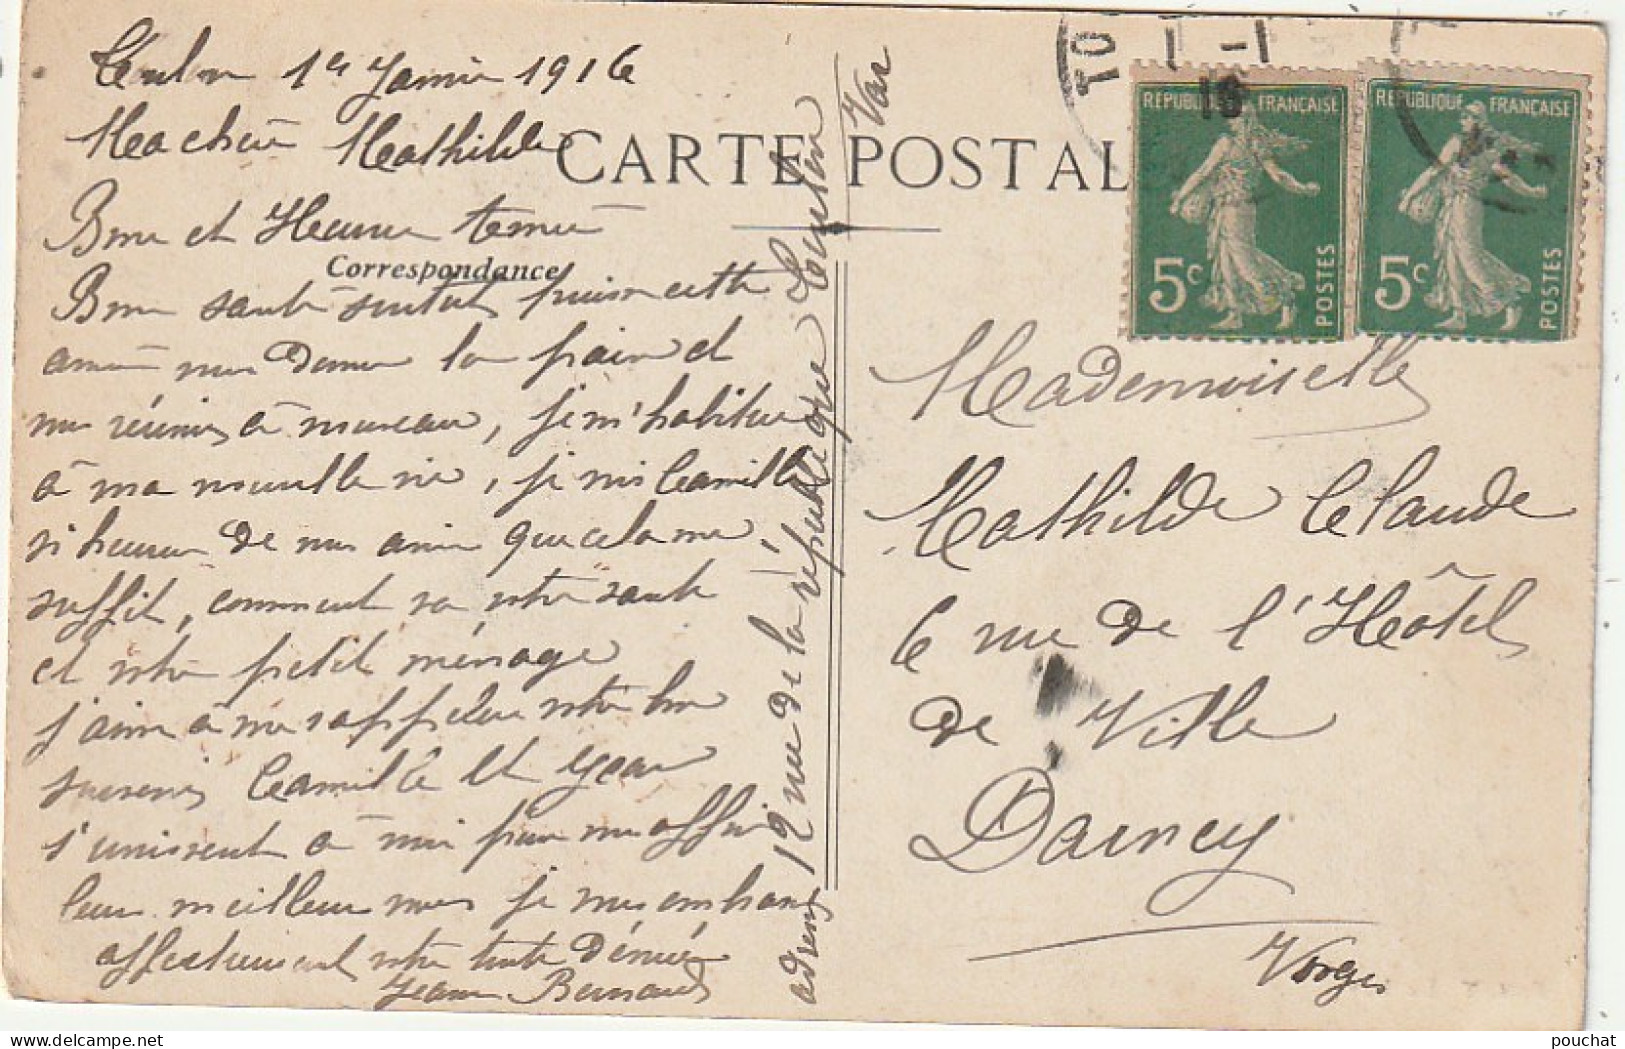 Toulon 1er Janvier 1916
Ma chère Mathilde
CARTE POSTAL
Bonne et Heureuse année
Correspondance
Bonne santé surtout puisse cette
année nous donner la paix et
nous réunir à nouveau, je m'habitue
à ma nouvelle vie, je suis Camille
si heureux de nous avoir que cela me
suffit, comment va votre santé
et votre petit ménage
j'aime à me rappeler votre bon
souvenir Camille et Jean
s'unissent à moi pour vous offrir
leurs meilleurs vœux je vous embrasse
affectueusement votre toute dévouée
Jeanne Bernard
adresse 12 rue de la république Toulon Var
TO
1 -1
16
RÉPUBLIQUE FRANÇAISE
5c
POSTES
RÉPUBLIQUE FRANÇAISE
5c
POSTES
Mademoiselle
Mathilde Claude
6 rue de l'Hôtel
de Ville
Darney
Vosges
pouchat